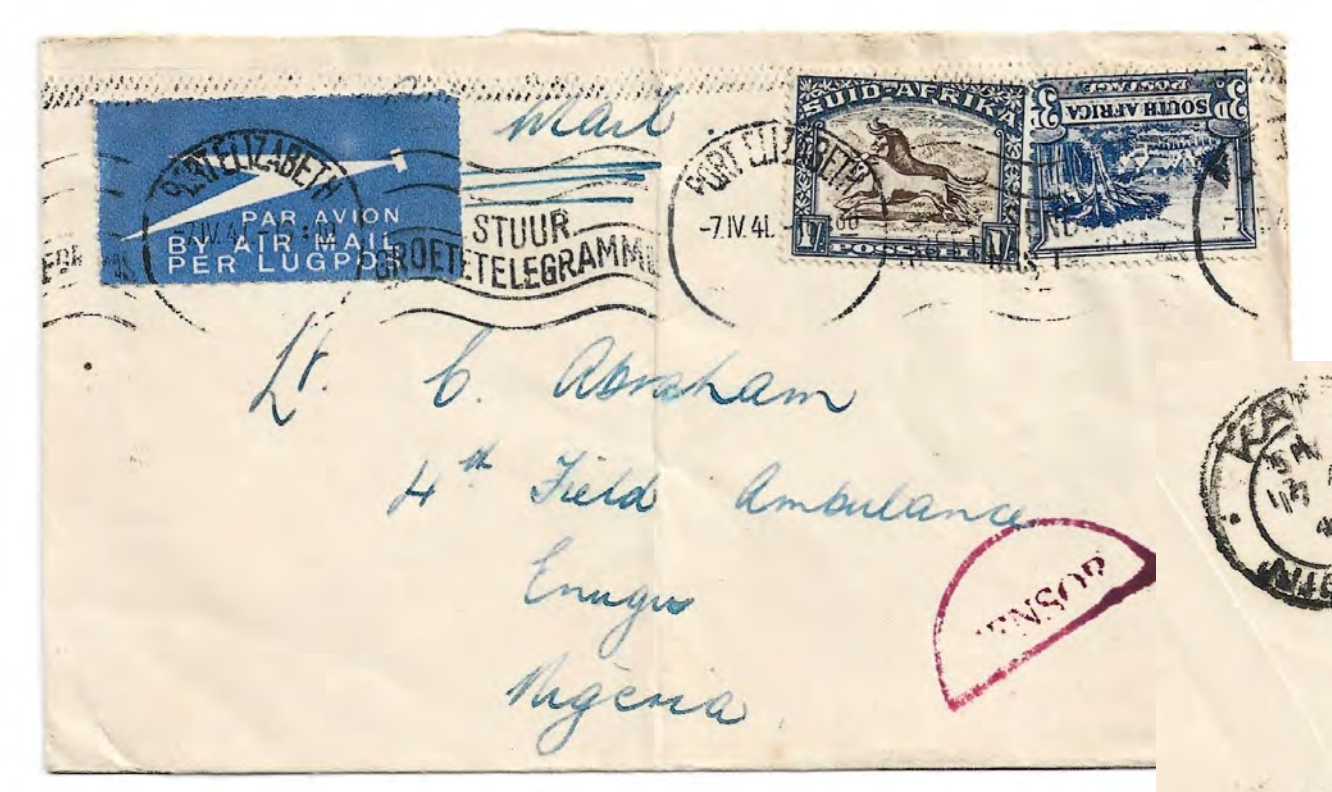 Mail
PORT ELIZABETH
-7.IV.41.
PAR AVION
BY AIR MAIL
PER LUGPOS
STUUR
GROETETELEGRAMME
PORT ELIZABETH
-7.IV.41.
SUID-AFRIKA
1/- 1/-
3D 3D
SOUTH AFRICA
POSTAGE
Lt. C. Abraham
4th Field Ambulance
Enugu
Nigeria